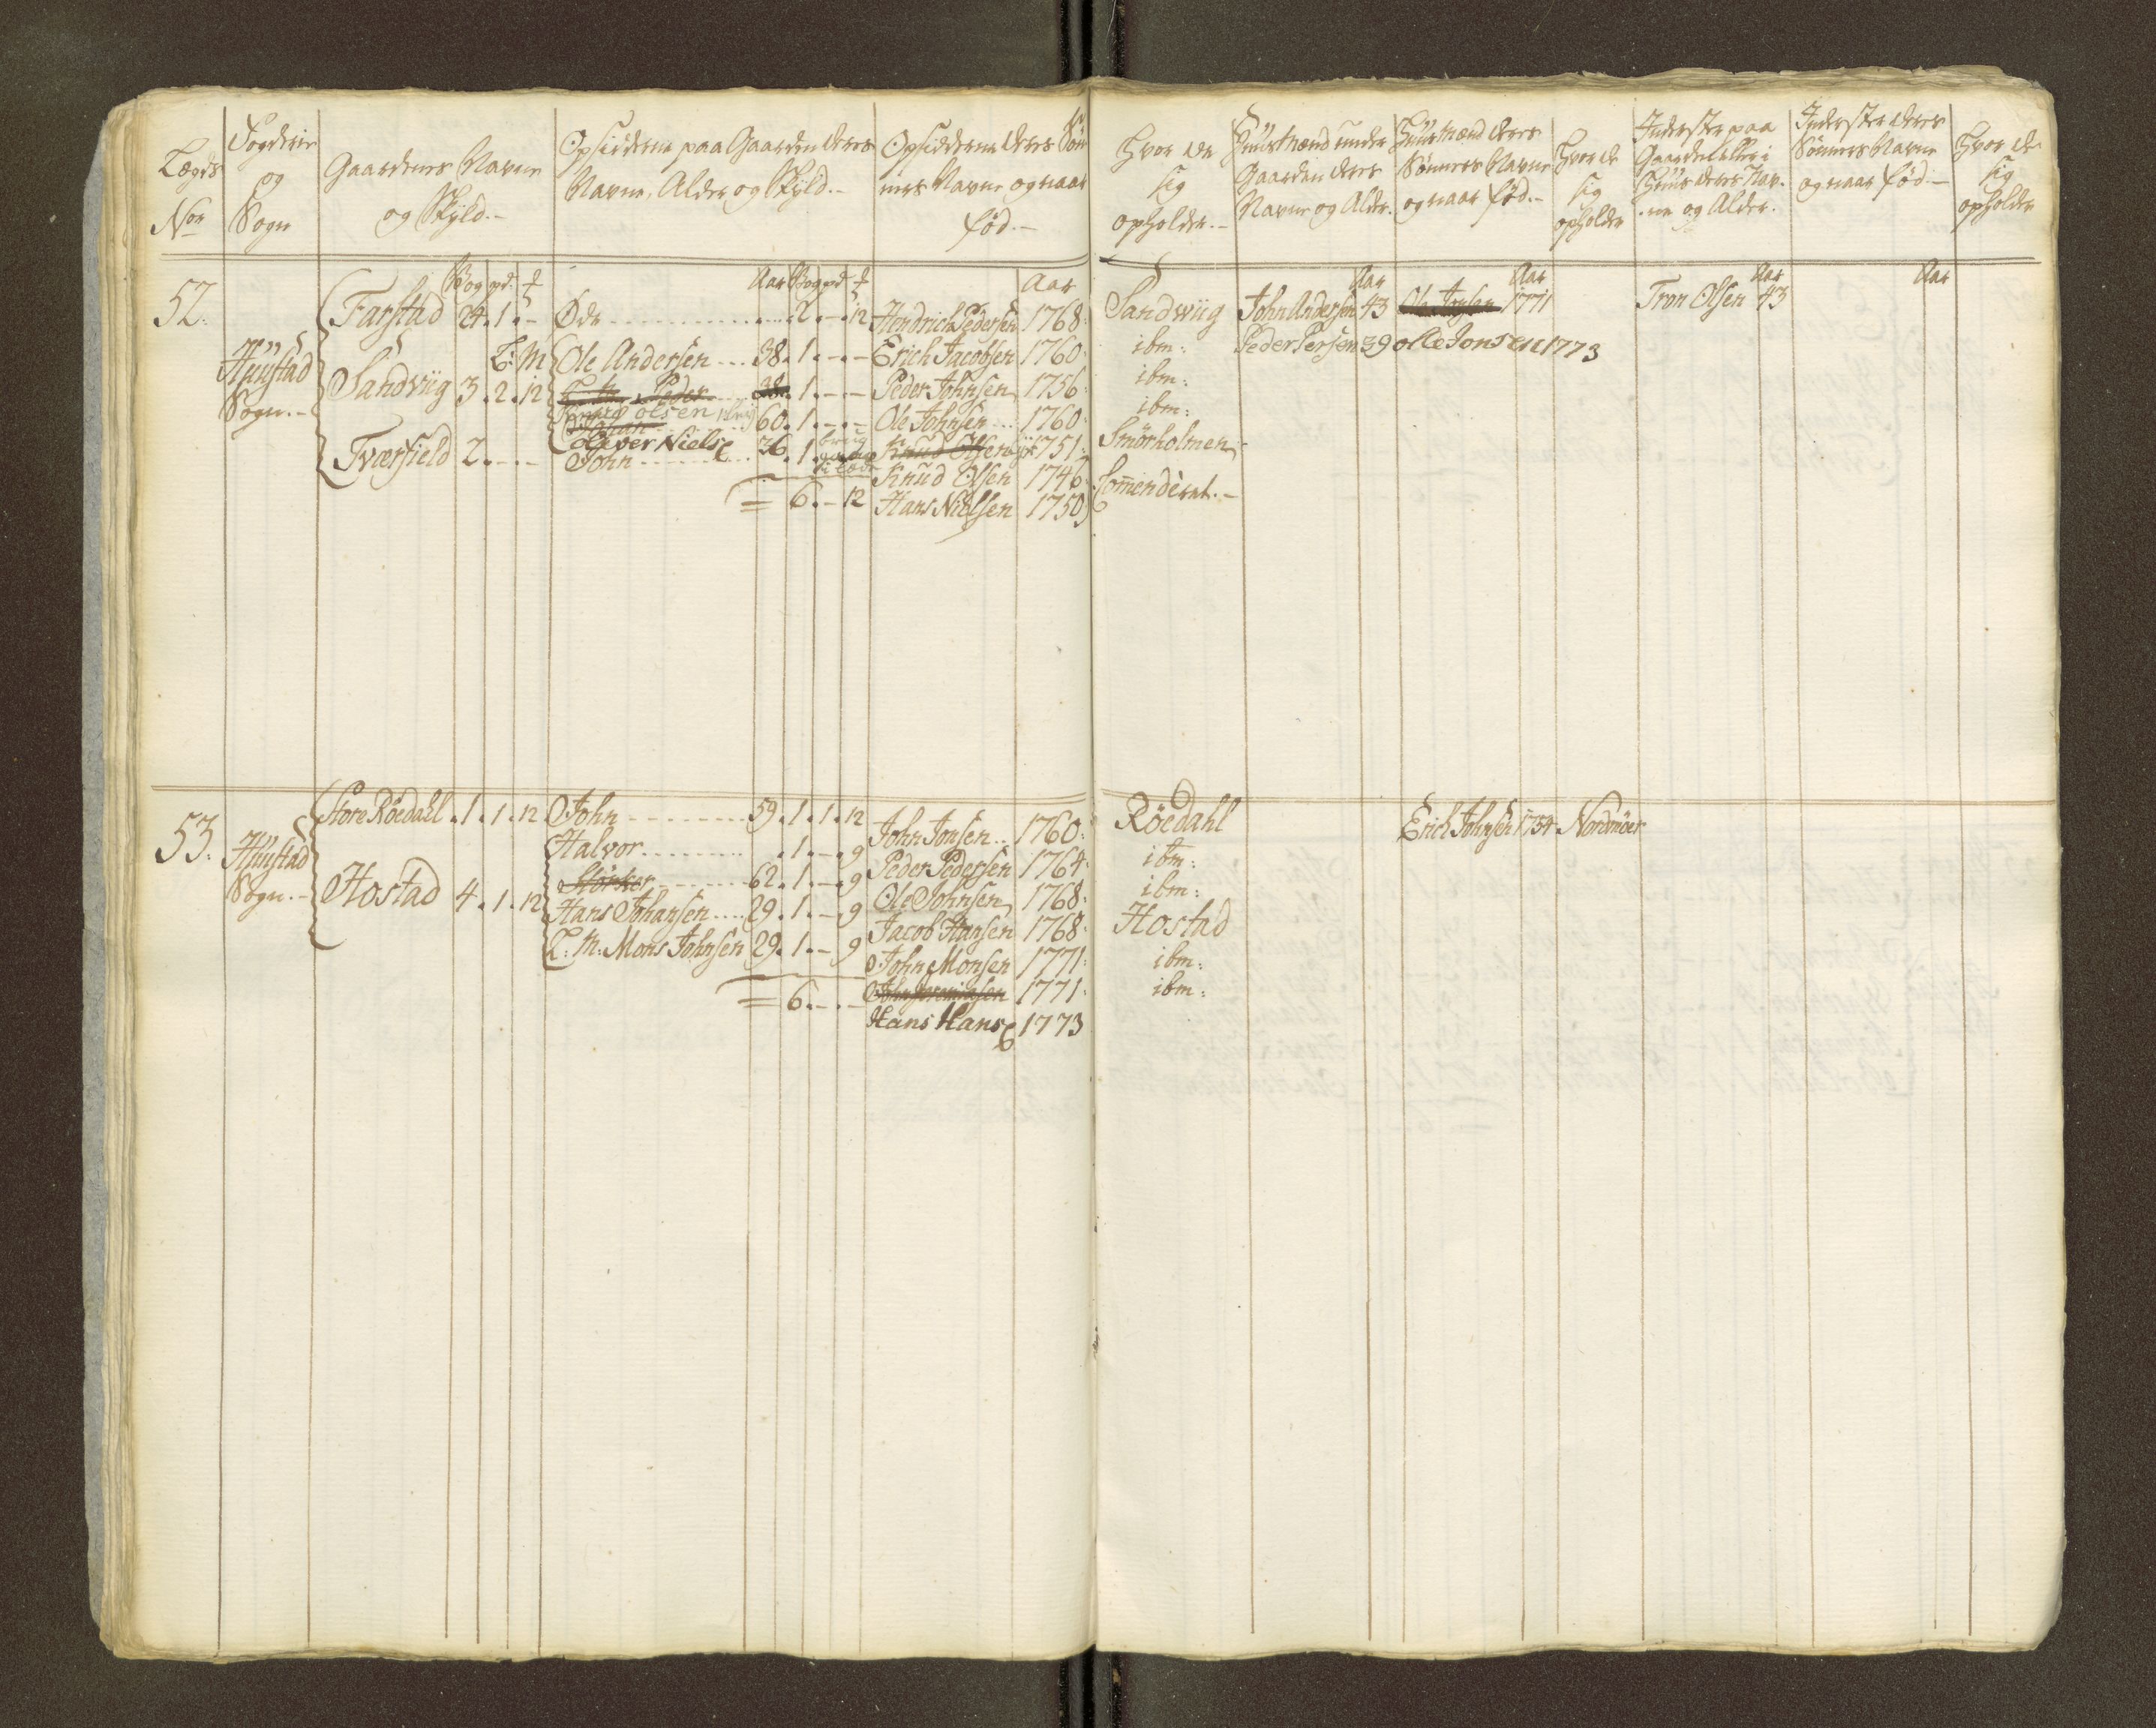 Lægds Nor
Fogderie og Sogn
Gaardenes Navne og Skyld.-
Opsidderne paa Gaarden deres Navne, Alder og Skyld.-
Opsiddernes deres Sønners Navne og naar fød.-
Hvor de sig opholder.-
Huusmænd under Gaarden deres Navne og Alder.
Huusmænd deres Sønners Navne og naar fød.-
Hvor de sig opholder
Inderster paa Gaarden eller i Huus deres Navne og Alder.
Inderster deres Sønners Navne og naar fød.-
Hvor de sig opholder
Vog pd.
Aar Vog pd
Aar
Aar
Aar
Aar
Aar
52.
Hüüstad Sogn.-
Farstad 24. 1. -
Øde 2. - . 12
Hendrich Pedersen 1768.
Sandwiig
John Andersen 43
Ole Jonsen 1771
Tron Olsen 43
L: M Ole Andersen 38. 1. - . -
Erich Jacobsen 1760.
ibm:
Peder Persen 39
Olle Jonsen 1773
Sandviig 3. 2. 12
L: M: Peder 38. 1. - . -
Peder Johnsen 1756.
ibm:
Knud olsen
Johan 60. 1. - . -
Ole Johnsen 1760.
ibm:
oliver Niels
Tværfield 2. - . -
John 36. 1.
Knud Olsen 1751.
Smörholmen
Knud Olsen 1746.
= 6. - 12
Hans Nielsen 1750
Commenderet.-
53.
Hüüstad Sogn.-
Store Röedahl . 1. 1. 12
John 59. 1. 1. 12
John Jonsen 1760.
Röedahl
Erich Johnsen 1754. Nordmöer
Halvor . 1. - . 9
Peder Pedersen 1764.
ibm:
Hostad 4. 1. 12
Störker 62. 1. - . 9
Ole Johnsen 1768.
ibm:
Hans Johansen 29. 1. - 9
Jacob Hansen 1768.
Hostad
L: M: Mons Johnsen 29. 1. - 9
John Monsen 1771.
ibm:
= 6. - . -
1771.
ibm:
Hans Hans 1773